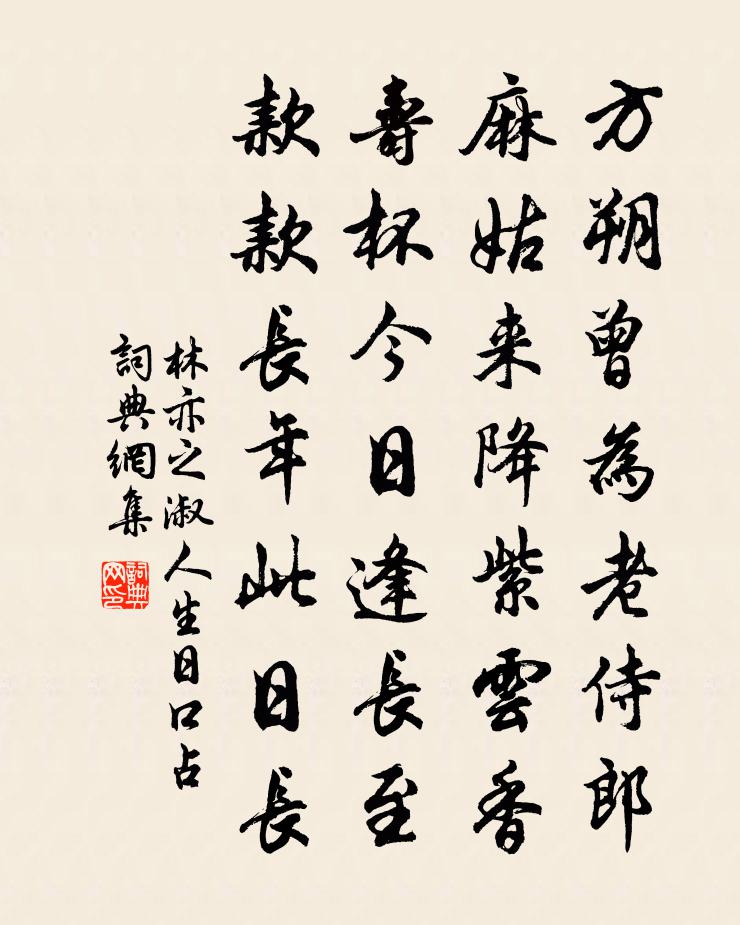 方朔曾為老侍郎
麻姑来降紫雲香
壽杯今日逢長至
款款長年此日長
林亦之淑人生日口占
詞典網集
詞典网印